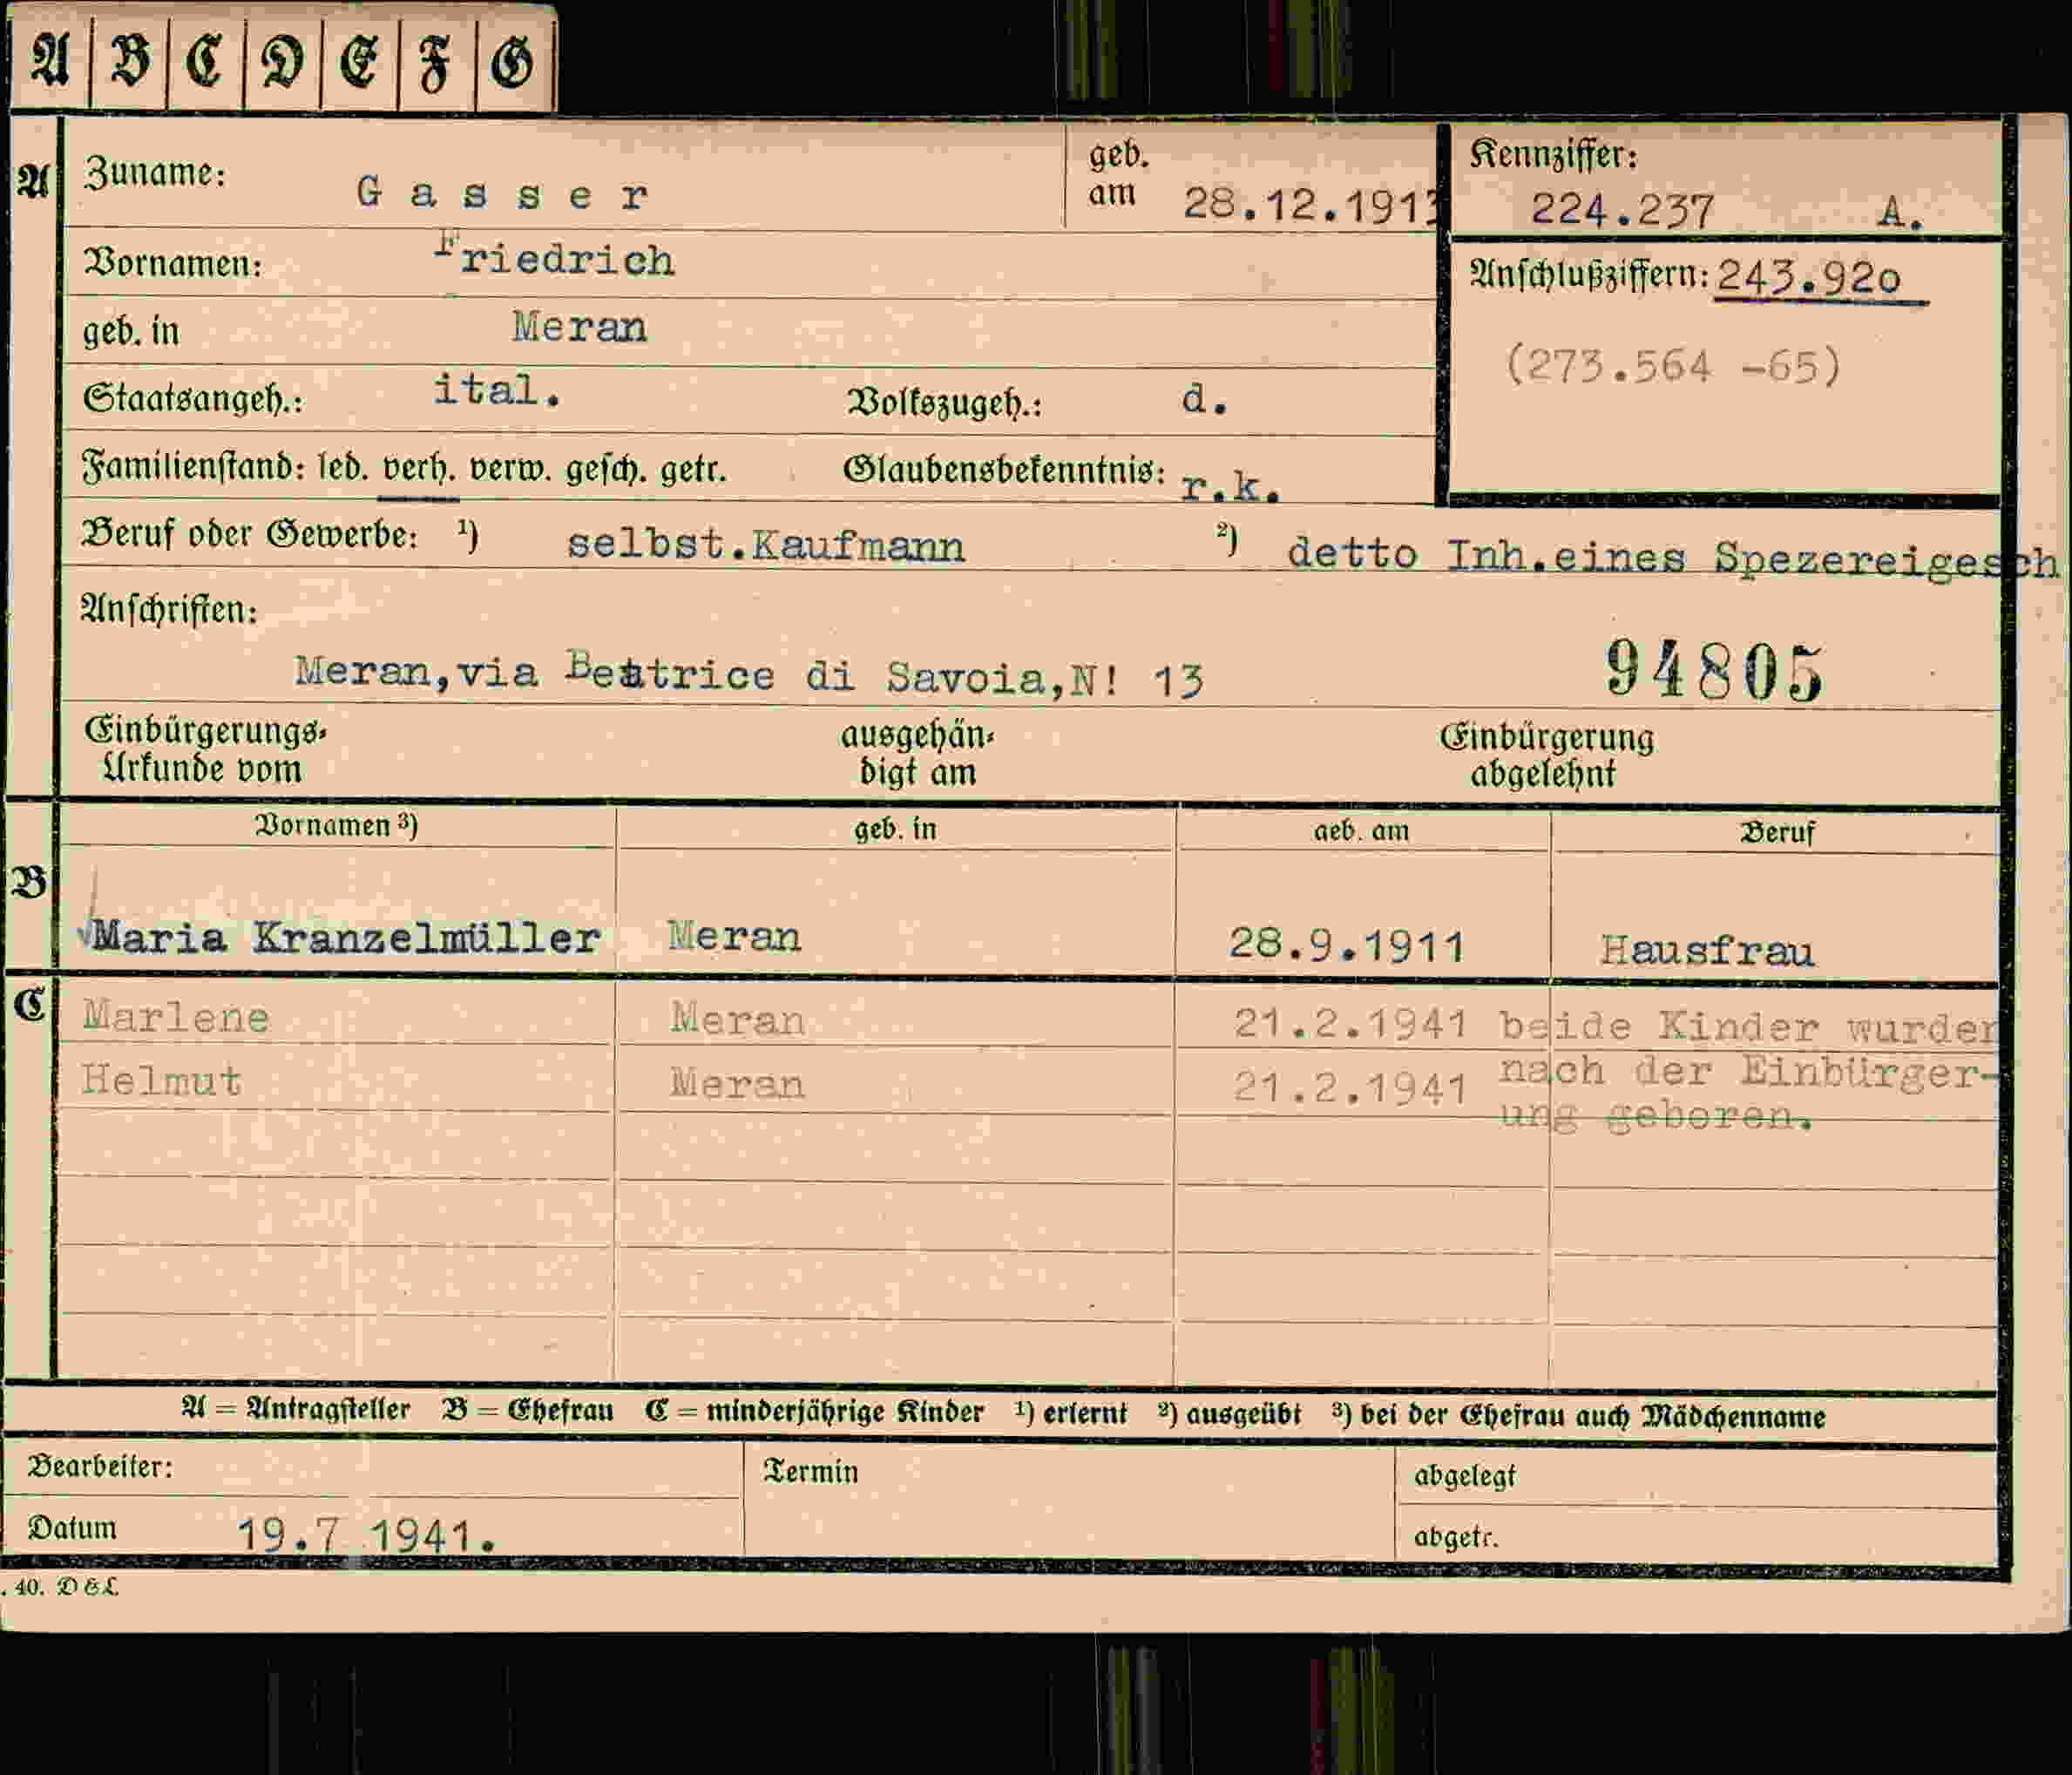 A B C D E F G
A Zuname: Gasser geb. am 28.12.1913 Kennziffer: 224.237 A.
Vornamen: Friedrich
Anschlußziffern: 243.92o
geb. in Meran
(273.564 -65)
Staatsangeh.: ital. Volkszugeh.: d.
Familienstand: led. verh. verw. gesch. getr. Glaubensbekenntnis: r.k.
Beruf oder Gewerbe: ¹) selbst.Kaufmann ²) detto Inh.eines Spezereigesch
Anschriften:
Meran,via Beatrice di Savoia,N! 13 94805
Einbürgerungs- ausgehän- Einbürgerung
Urkunde vom digt am abgelehnt
Vornamen ³) geb. in geb. am Beruf
B
Maria Kranzelmüller Meran 28.9.1911 Hausfrau
C Marlene Meran 21.2.1941 beide Kinder wurden
Helmut Meran 21.2.1941 nach der Einbürger-
ung geboren.
A = Antragsteller B = Ehefrau C = minderjährige Kinder ¹) erlernt ²) ausgeübt ³) bei der Ehefrau auch Mädchenname
Bearbeiter: Termin abgelegt
Datum 19.7 1941. abgetr.
. 40. D & L